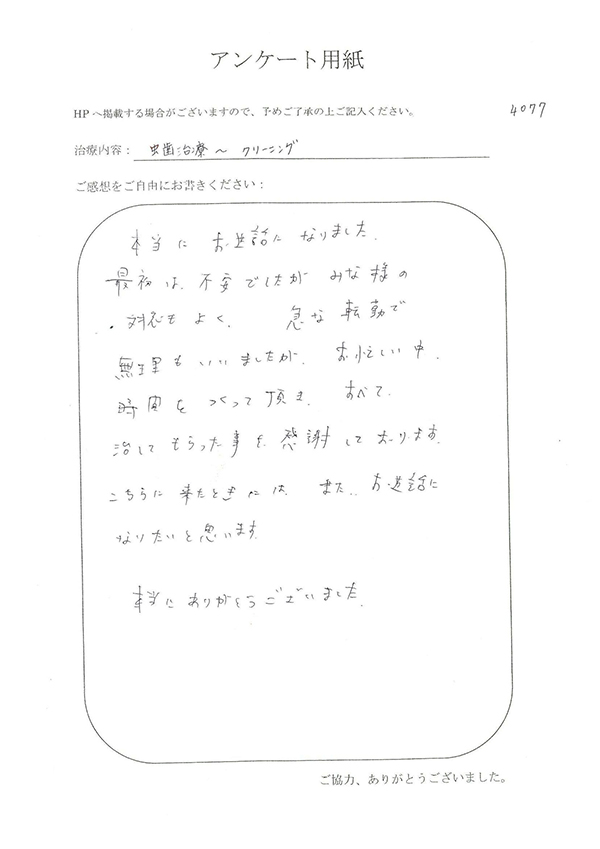 アンケート用紙
HPへ掲載する場合がございますので、予めご了承の上ご記入ください。
4077
治療内容： 虫歯治療～クリーニング
ご感想をご自由にお書きください：
本当に お世話に なりました.
最初は、不安でしたが みな様の
対応も よく、 急な 転勤で
無理も いいましたが、 お忙しい中、
時間を つくって 頂き、 すべて
治して もらった事を 感謝して おります.
こちらに 来たときには、 また、お世話に
なりたいと思います.
本当にありがとうございました.
ご協力、ありがとうございました。